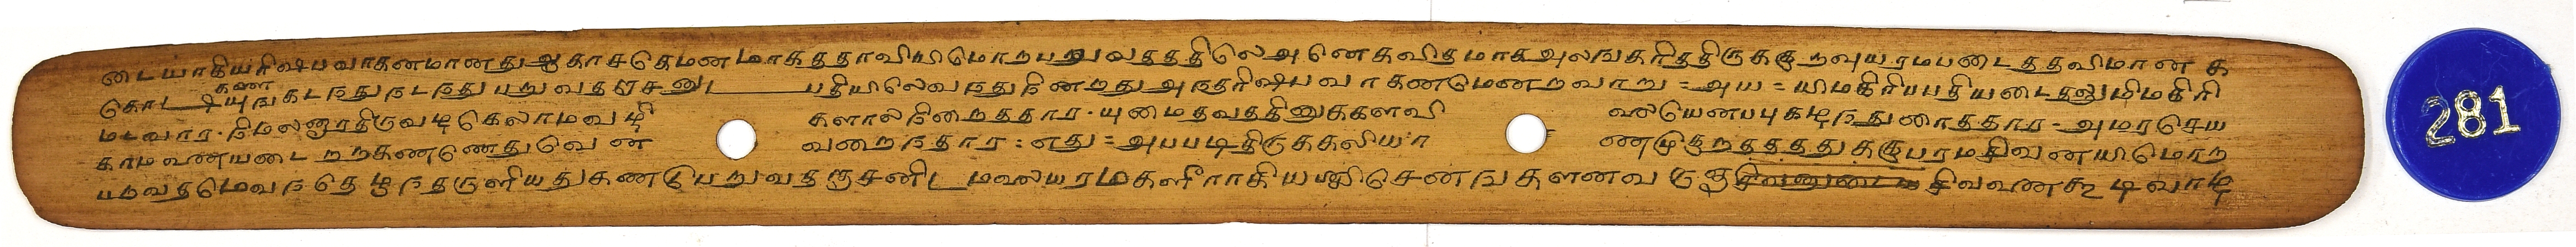 டையாகியரிஷபவாகனமானதுஆகாசகெமனமாகததாவியிமொறபறுவதததிலெஅனெகவிதமாகஅலஙகரிததிருககுறவுயரமபடைததவிமான க
கொடஷியுஙகணகடநதுநடநதுபறுவதராசனுட பதியிலெவநதுநினறதுஅநதரிஷபவாகணமெணறவாறு = அய = யிமகிரியபதியடைதலுமிமகிரி
மடவார. நிமலனூரதிருவடிகெலாமவழி களாலநிறைததார. யுமைதவததினுககளவி லலையெனபபுகழநதுரைததார = அமரசெய
காமவணையடை றறகணணெதுவென வறைநதார : எது = அபபடிதிருககலியா ணமுகூறதததுககுபரமசிவனயிமொற
பறவதமெவநதெழுநதருளியதுகணடுபெறுவதராசனிட மலையரமகளீராகியயுவிசெனஙகளனவருஞ சிவவணகூடிவாழி
281